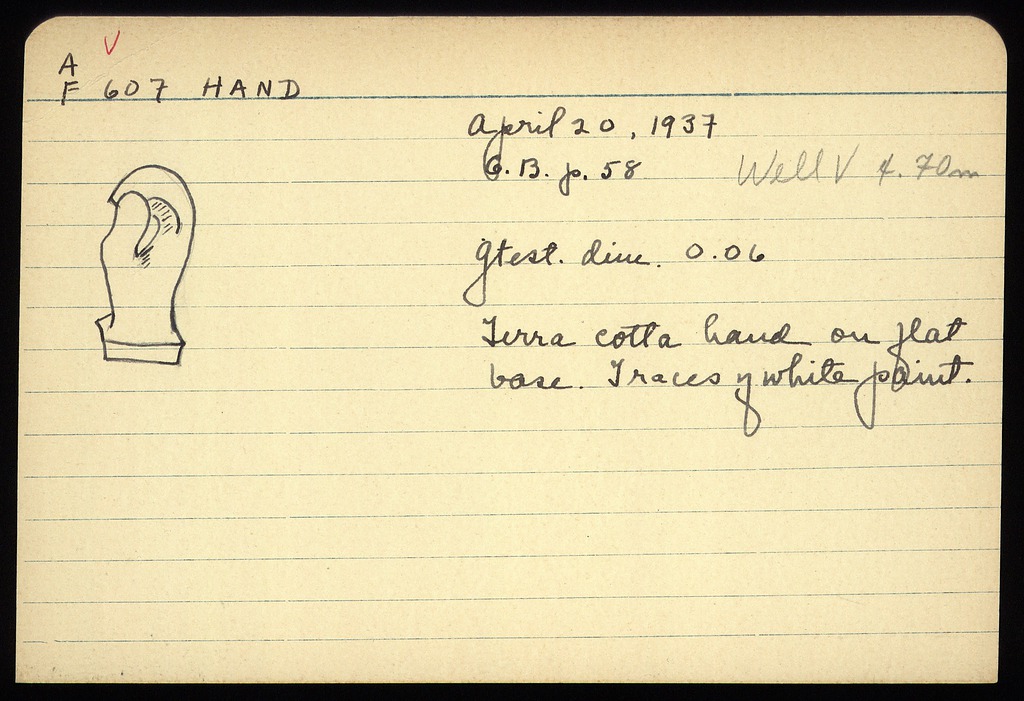 V
A
F 607 HAND
April 20, 1937
G.B. p. 58 Well V 4.70m
gtest. dim. 0.06
Terra cotta hand on flat
base. Traces of white paint.